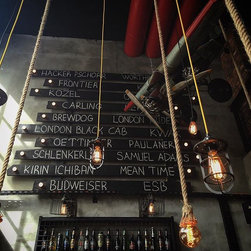 HACKER PSCHORR WORTH
FRONTIER
KOZEL
CARLING
BREWDOG LONDON
LONDON BLACK CAB KVW
OETTINGER PAULANER
SCHLENKERLA SAMUEL ADAMS
KIRIN ICHIBAN MEAN TIME
BUDWEISER ESB